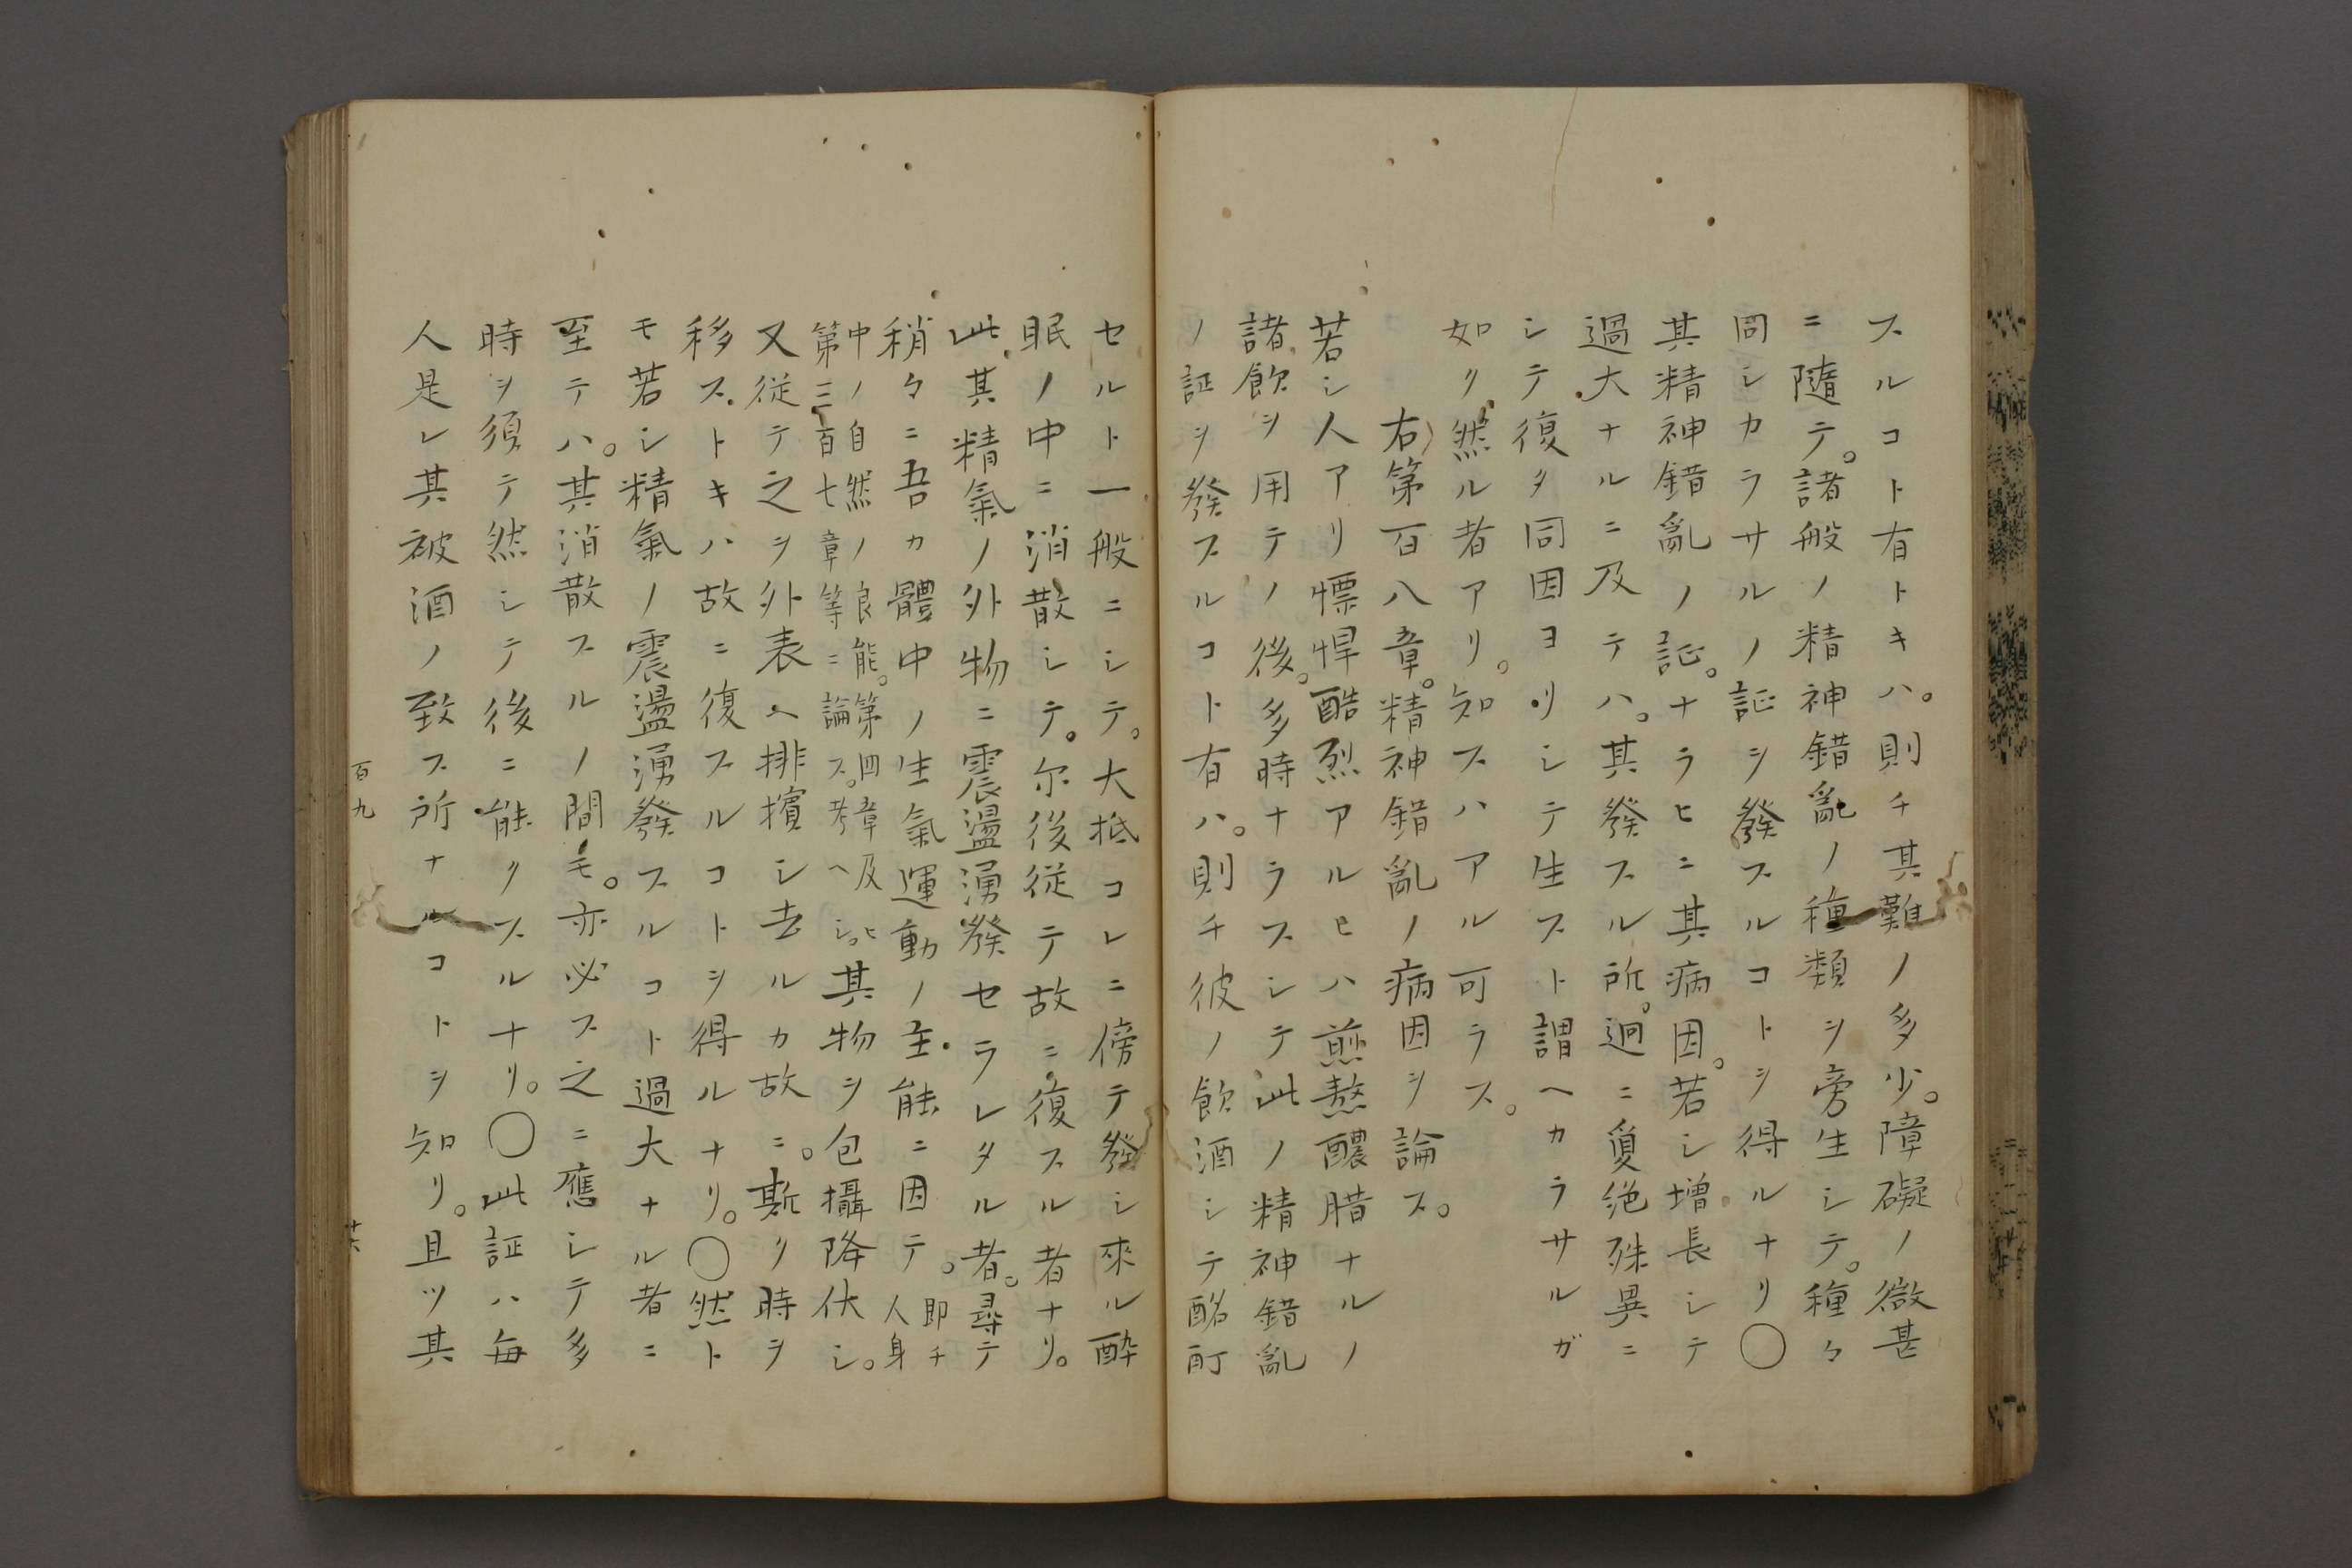 スルコト有トキハ。則チ其難ノ多少。障礙ノ微甚
ニ隨テ。諸般ノ精神錯亂ノ種類ヲ旁生シテ。種々
同シカラサルノ証ヲ發スルコトヲ得ルナリ〇
其精神錯亂ノ証。ナラヒニ其病因。若シ増長シテ
過大ナルニ及テハ。其發スル所。迥ニ夐絶殊異ニ
シテ復タ同因ヨリシテ生スト謂ヘカラサルガ
如ク然ル者アリ。知スハアル可ラス。
右第百八章。精神錯亂ノ病因ヲ論ス。
若シ人アリ慓悍酷烈アルヒハ煎熬醲腊ナルノ
諸飲ヲ用テノ後。多時ナラスシテ此ノ精神錯亂
ノ証ヲ發スルコト有ハ。則チ彼ノ飲酒シテ酩酊
セルト一般ニシテ。大抵コレニ傍テ發シ來ル酔
眠ノ中ニ消散シテ。尔後従テ故ニ復スル者ナリ。
此其精氣ノ外物ニ震盪湧發セラレタル者。尋テ
稍々ニ吾カ體中ノ生氣運動ノ主能ニ因テ。即チ人身
中ノ自然ノ良能。第四章及ヒ第三百七章等ニ論ス。考ヘシ。其物ヲ包攝降伏シ。
又従テ之ヲ外表ヘ排擯シ去ルカ故ニ。斯ク時ヲ
移ストキハ故ニ復スルコトヲ得ルナリ。〇然ト
モ若シ精氣ノ震盪湧發スルコト過大ナル者ニ
至テハ。其消散スルノ間モ。亦必ス之ニ應シテ多
時ヲ須テ然シテ後ニ能クスルナリ。〇此証ハ毎
人是レ其被酒ノ致ス所ナルコトヲ知リ。且ツ其
百九